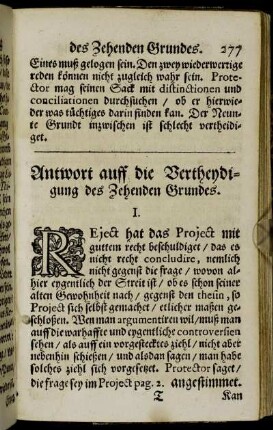 des Zehenden Grundes. 277
Eines muß gelogen sein. Den zwey wiederwertige
reden können nicht zugleich wahr sein. Prote-
ctor mag seinen Sack mit distinctionen und
conciliationen durchsuchen / ob er hierwie-
der was tüchtiges darin finden kan. Der Neun-
te Grundt inzwischen ist schlecht vertheidi-
get.
Antwort auff die Vertheydi-
gung des Zehenden Grundes.
I.
REject hat das Project mit
guttem recht beschuldiget / das es
nicht recht concludire, nemlich
nicht gegenst die frage / wovon al-
hier eygentlich der Streit ist / ob es schon seiner
alten Gewohnheit nach / gegenst den thesin, so
Project sich selbst gemachet / etlicher maßen ge-
schloßen. Wen man argumentiren wil / muß man
auff die warhaffte und eygentliche controversien
sehen / als auff ein vorgestecktes ziehl / nicht aber
nebenhin schießen / und alsdan sagen / man habe
solches ziehl sich vorgesetzet. Protector saget /
die frage sey im Project pag. 2. angestimmet.
T Kan